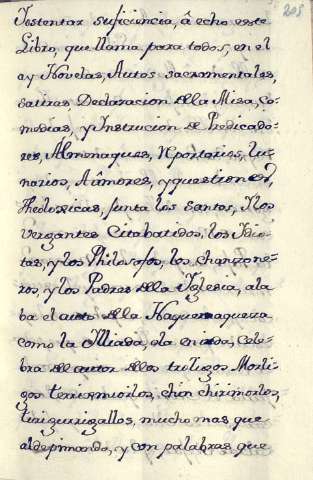 205
Tostentar suficiencia, â echo este
Libro, que llama para todos, en el
ay Novelas, Autos sacramentales,
satiras Declaracion della Misa, Co-
medias, y Instrucion de Predicado-
res, Almenaques, Reportorios, lu-
narios, Aûmores, y questiones,
Theoloxicas, junta los Santos, Ylos
Vergantes Cita batidos, los Idio-
tas, y los Philosofos, los chanzone-
ros, y los Padres della Yglesia, ala
ba el auto della Naquemaqueva
como la Illiada, ola eneada, Cele-
bra del autor dellos trilugos Morli-
gos terrirmoilos, chin chirimoilos,
tiri gurrigallos, mucho mas que
al depimando, y con palabras que